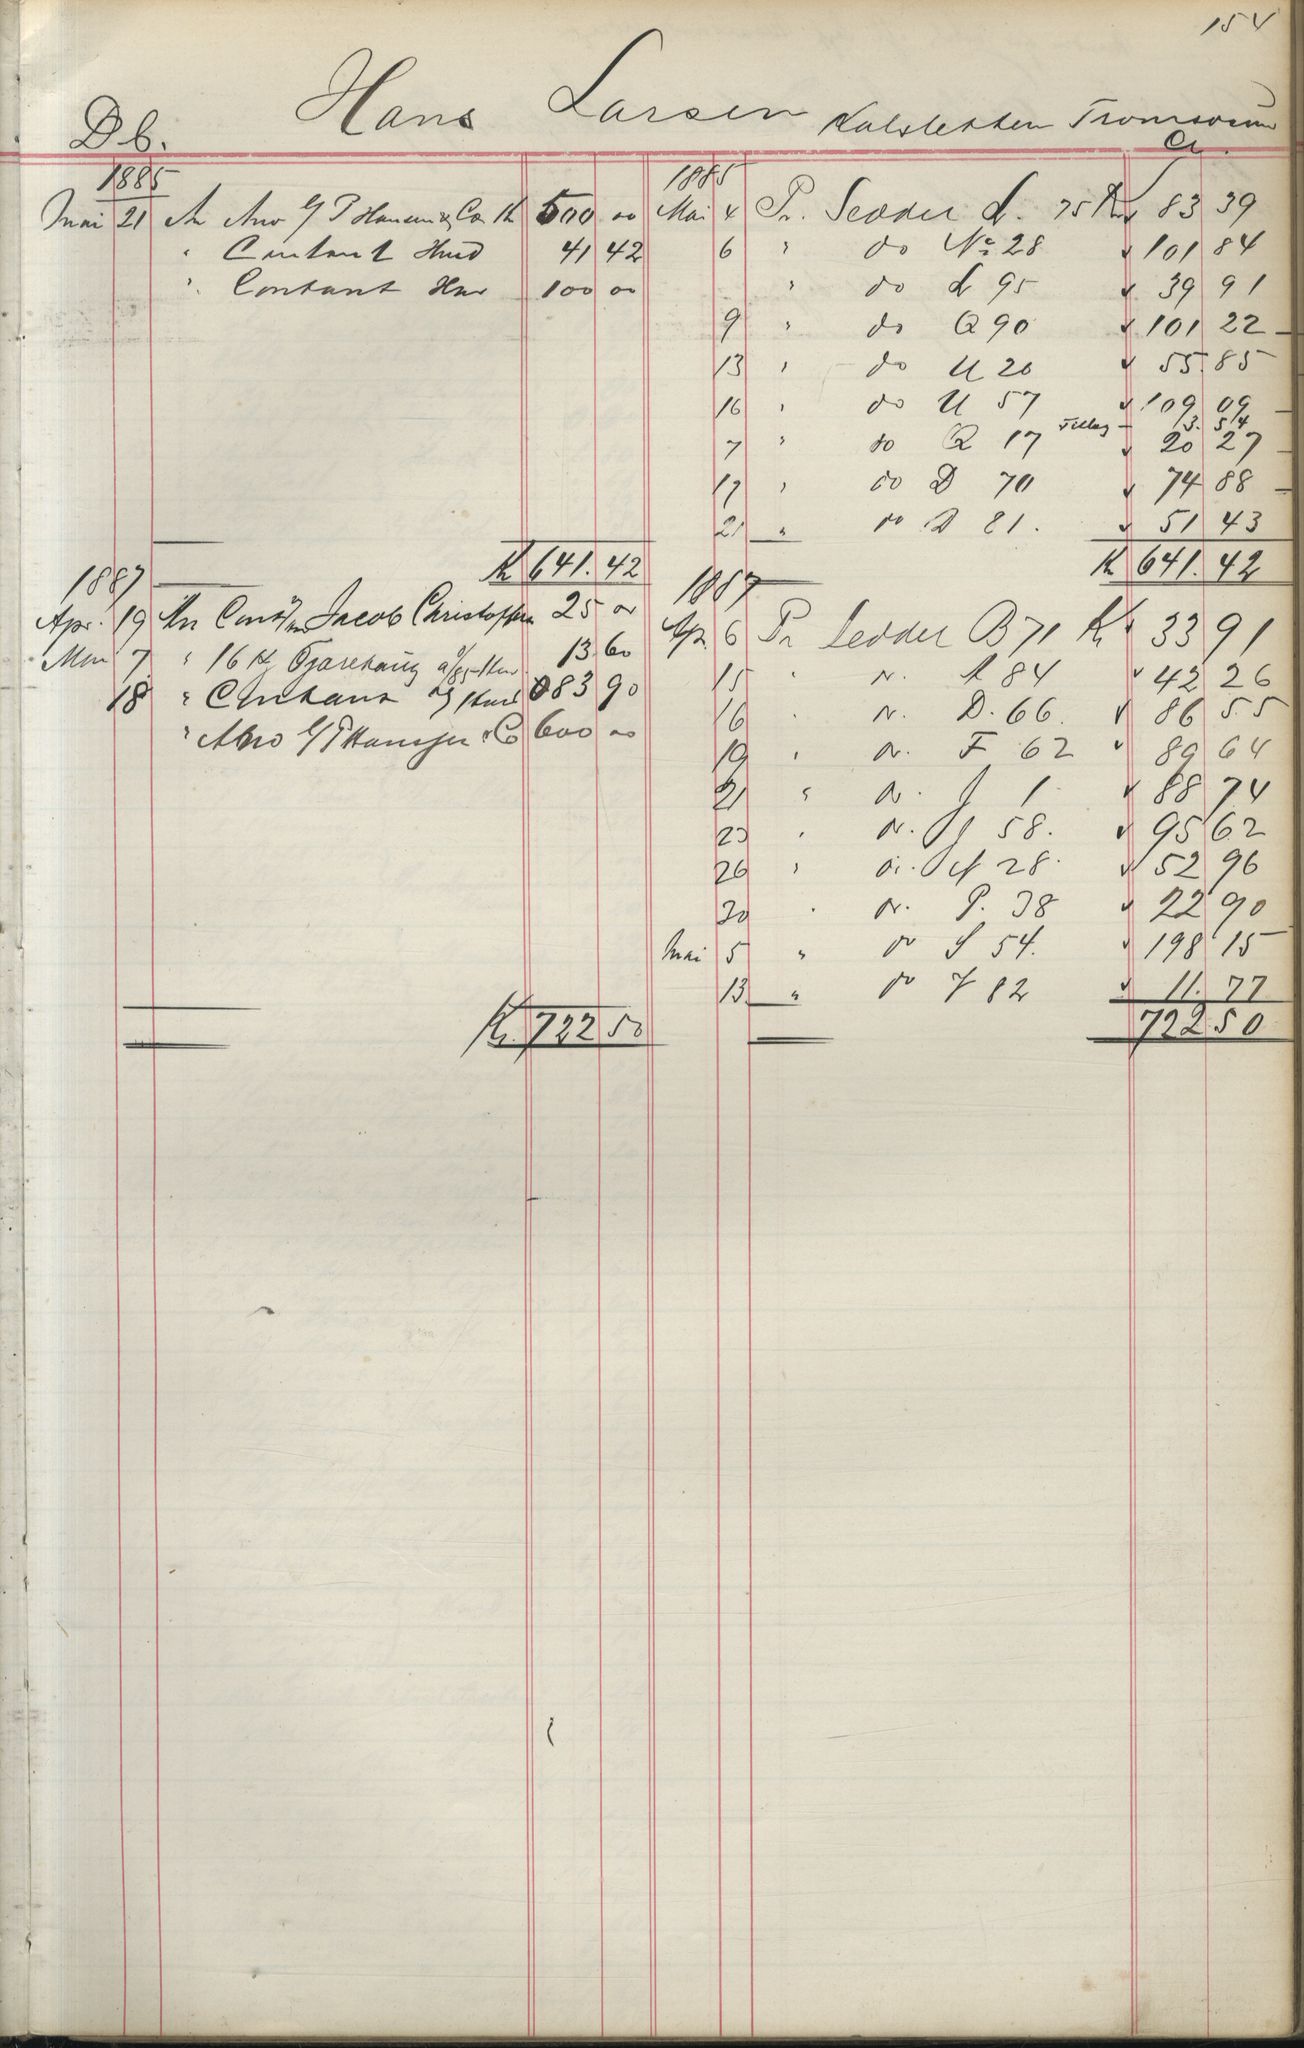 154
Hans Larsen Kalsletten Tromsøsund
Db. Cr.
1885
Mai 21 An Anv G P Hansen & Co Kr 500 00
" Contant Hmd 41 42
" Contant Ham 100 00
Kr 641. 42
1887
Apr. 19 An Jacob Christoffersen 25 00
7 " 16 Kg 13 60
18 " Contant 83 90
" Anv G P Hanssen & Co 600 00
Kr. 722 50
1885
Mai 4 Pr. Sedder L. 75 Kr 83 39
6 " do No 28 101 84
" do L 95 39 91
9 " do Q 90 101 22
13 " do U 20 55.85
16 " do U 57 109 09
Tillæg 3. 54
7 " do Q 17 20 27
17 " do D 70 74 88
21 " do D 81. 51 43
Kr 641. 42
1887
Apr. 6 Pr Sedder B 71 Kr 33 91
15 " do A 84 42 26
16 " do D. 66. 86 55
19 " do F 62 89 64
21 " do J 1 88 74
23 " do J 58. 95 62
26 " do 28. 52 96
30 " do P. 38 22 90
Mai 5 " do S 54. 198 15
13 " do 82 11. 77
722 50